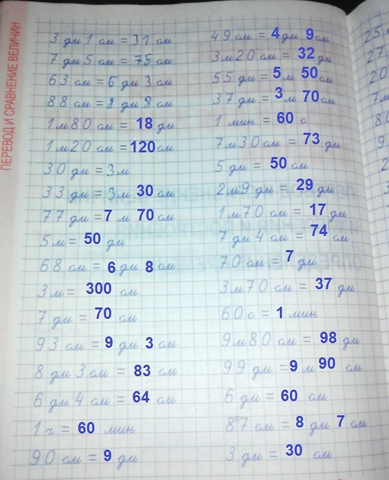 ПЕРЕВОД И СРАВНЕНИЕ ВЕЛИЧИН
3 дм 1 см = 31 см
7 дм 5 см = 75 см
63 см = 6 дм 3 см
88 см = 8 дм 8 см
1 м 80 см = 18 дм
1 м 20 см = 120 см
30 дм = 3 м
33 дм = 3 м 30 см
77 дм = 7 м 70 см
5 м = 50 дм
68 см = 6 дм 8 см
3 м = 300 см
7 дм = 70 см
93 см = 9 дм 3 см
8 дм 3 см = 83 см
6 дм 4 см = 64 см
1 ч = 60 мин
90 см = 9 дм
49 см = 4 дм 9 см
3 м 20 см = 32 дм
55 дм = 5 м 50 см
37 дм = 3 м 70 см
1 мин = 60 с
7 м 30 см = 73 дм
5 дм = 50 см
2 м 9 дм = 29 дм
1 м 70 см = 17 дм
7 дм 4 см = 74 см
70 см = 7 дм
3 м 70 см = 37 дм
60 с = 1 мин
9 м 80 см = 98 дм
99 дм = 9 м 90 см
6 дм = 60 см
87 см = 8 дм 7 см
3 дм = 30 см